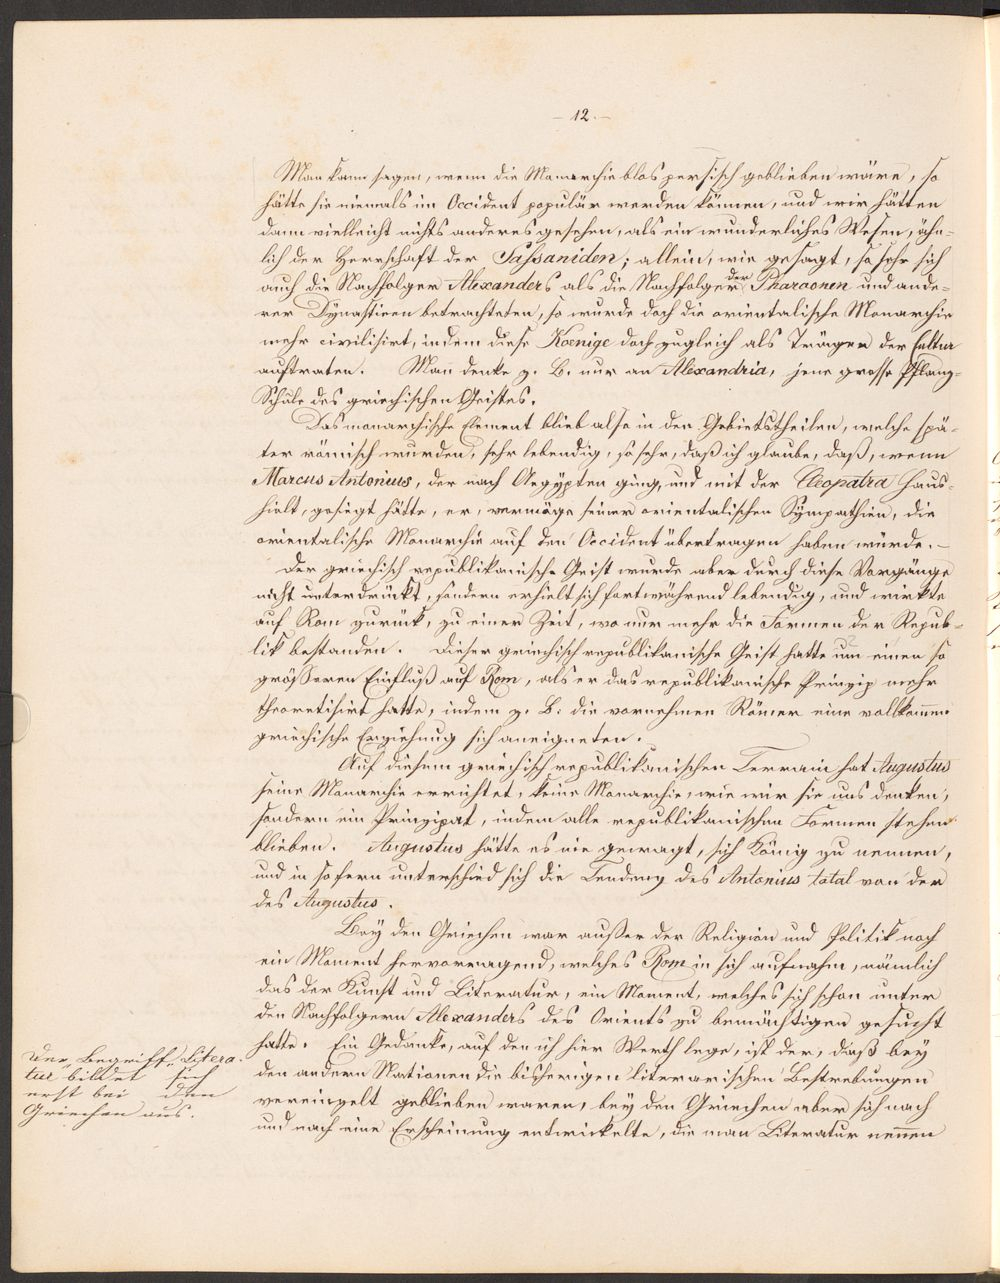 - 12. -
Man kann sagen, wenn die Monarchie blos persisch geblieben wäre, so
hätte sie niemals im Occident populär werden können, und wir hätten
dann vielleicht nichts anderes gesehen, als ein wunderliches Wesen, ähn-
lich der Herrschaft der Sassaniden; allein, wie gesagt, so sehr sich
auch die Nachfolger Alexanders als die Nachfolger der Pharaonen und ande-
rer Dynastieen betrachteten, so wurde doch die orientalische Monarchie
mehr civilisirt, indem diese Koenige doch zugleich als Träger der Cultur
auftraten. Man denke z. B. nur an Alexandria, jene grosse Pflanz-
Schule des griechischen Geistes.
Das monarchische Element blieb also in den Gebietstheilen, welche spä-
ter römisch wurden, sehr lebendig, so sehr, daß ich glaube, daß, wenn
Marcus Antonius, der nach Aegypten ging, und mit der Cleopatra Haus-
hielt, gesiegt hätte, er, vermöge seiner orientalischen Sympathien, die
orientalische Monarchie auf den Occident übertragen haben würde. -
Der griechisch republikanische Geist wurde aber durch diese Vorgänge
nicht unterdrückt, sondern erhielt sich fortwährend lebendig, und wirkte
auf Rom zurück, zu einer Zeit, wo nur mehr die Formen der Repub-
lik bestanden. Dieser griechisch republikanische Geist hatte um einen so
grösseren Einfluß auf Rom, als er das republikanische Prinzip mehr
theoretisirt hatte, indem z. B. die vornehmen Römer eine vollkommen
griechische Erziehung sich aneigneten.
Auf diesem griechisch republikanischen Terrain hat Augustus
seine Monarchie errichtet, keine Monarchie, wie wir sie uns denken,
sondern ein Prinzipat, indem alle republikanischen Formen stehen
blieben. Augustus hätte es nie gewagt, sich König zu nennen,
und in sofern unterschied sich die Tendenz des Antonius total von der
des Augustus.
Bey den Griechen war außer der Religion und Politik noch
ein Moment hervorragend, welches Rom in sich aufnahm, nämlich
das der Kunst und Literatur, ein Moment, welches sich schon unter
den Nachfolgern Alexanders des Orients zu bemächtigen gesucht
hatte. Ein Gedanke, auf den ich hier Werth lege, ist der, daß bey
den andern Nationen die bisherigen literarischen Bestrebungen
vereinzelt geblieben waren, bey den Griechen aber sich nach
und nach eine Erscheinung entwickelte, die man Literatur nennen
Der Begriff „Litera-
tur" bildet sich
erst bei den
Griechen aus.